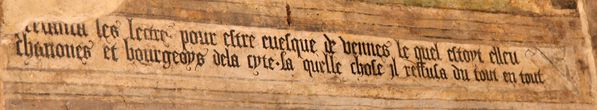 les lectre pour estre euesque de vennes le quel estoyt esleu
chanones et bourgeoys dela cyte · la quelle chose il reffusa du tout en tout